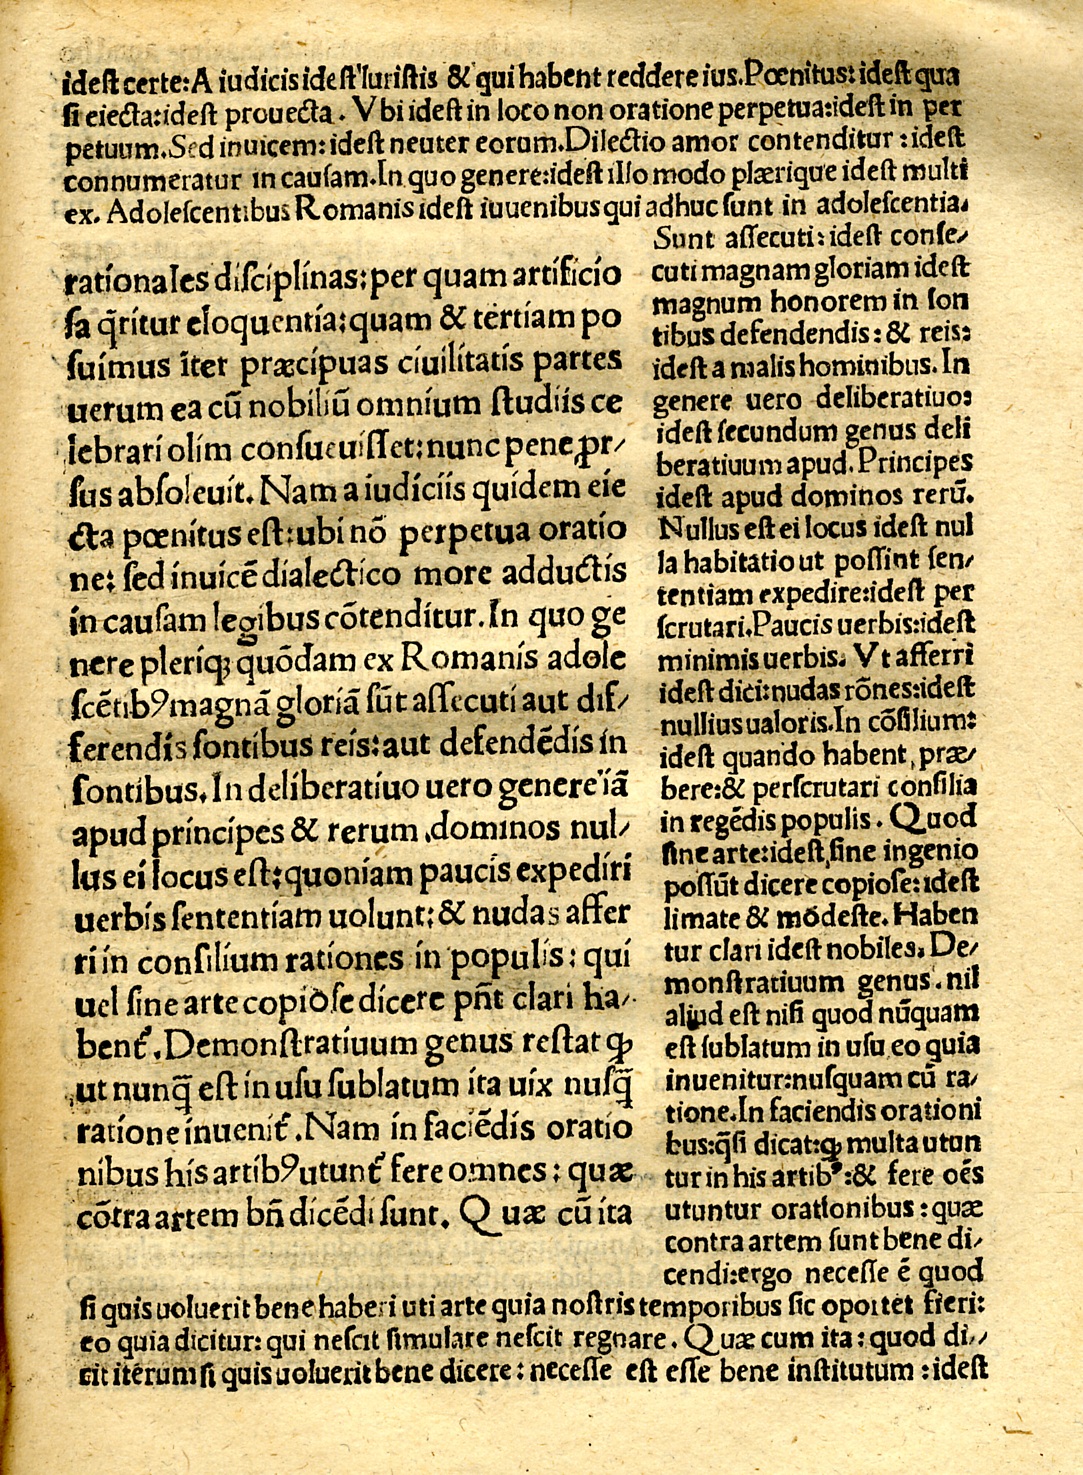 idest certe: A iudicis idest Iuristis & qui habent reddere ius. Pœnitus: idest qua
si eiecta: idest prouecta. Vbi idest in loco non oratione perpetua: idest in per
petuum. Sed inuicem: idest neuter eorum. Dilectio amor contenditur: idest
connumeratur in causam. In quo genere: idest illo modo plærique idest multi
ex. Adolescentibus Romanis idest iuuenibus qui adhuc sunt in adolescentia.
rationales disciplinas: per quam artificio
sa q̄ritur eloquentia: quam & tertiam po
suimus īter præcipuas ciuilitatis partes
uerum ea cū nobiliū omnium studiis ce
lebrari olim consueuisset: nunc pene ꝓr⸗
sus absoleuit. Nam a iudiciis quidem eie
cta pœnitus est: ubi nō perpetua oratio
ne: sed inuicē dialectico more adductis
in causam legibus cōtenditur. In quo ge
nere pleriqꝫ quōdam ex Romanis adole
scētibꝰ magnā gloriā sūt assecuti aut dif⸗
ferendis sontibus reis: aut defendēdis in
sontibus. In deliberatiuo uero genere iā
apud principes & rerum dominos nul⸗
lus ei locus est: quoniam paucis expediri
uerbis sententiam uolunt: & nudas affer
ri in consilium rationes in populis: qui
uel sine arte copiose dicere pn̄t clari ha⸗
bent᷑. Demonstratiuum genus restat ꝙ
ut nunq̄ est in usu sublatum ita uix nusq̄
ratione inuenit᷑. Nam in faciēdis oratio
nibus his artibꝰ utunt᷑ fere omnes: quæ
cōtra artem bn̄ dicēdi sunt. Quæ cū ita
Sunt assecuti: idest conse⸗
cuti magnam gloriam idest
magnum honorem in son
tibus defendendis: & reis:
idest a malis hominibus. In
genere uero deliberatiuo:
idest secundum genus deli
beratiuum apud. Principes
idest apud dominos rerū.
Nullus est ei locus idest nul
la habitatio ut possint sen⸗
tentiam expedire: idest per
scrutari. Paucis uerbis: idest
minimis uerbis. Vt afferri
idest dici: nudas rōnes: idest
nullius ualoris. In cōsilium:
idest quando habent præ⸗
bere: & perscrutari consilia
in regēdis populis. Quod
sine arte: idest sine ingenio
possūt dicere copiose: idest
limate & modeste. Haben
tur clari idest nobiles. De⸗
monstratiuum genus. nil
aliud est nisi quod nūquam
est sublatum in usu eo quia
inuenitur: nusquam cū ra⸗
tione. In faciendis orationi
bus: q̄si dicat: ꝙ multa utun
tur in his artibꝰ: & fere oēs
utuntur orationibus: quæ
contra artem sunt bene di⸗
cendi: ergo necesse ē quod
si quis uoluerit bene haberi uti arte quia nostris temporibus sic oportet fieri:
eo quia dicitur: qui nescit simulare nescit regnare. Quæ cum ita: quod di⸗
cit iterum si quis uoluerit bene dicere: necesse est esse bene institutum: idest